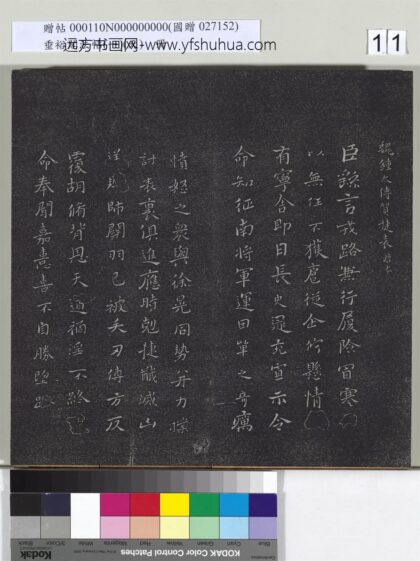 贈帖 000110N000000000(國贈 027152)
远方书画网-www.yfshuhua.com
11
魏鍾太傅賀捷表
臣繇言戎路兼行履險冒寒
以無任不獲扈從企佇懸情
有寧舍即日長史逯充宣示令
命知征南將軍運田單之奇厲
憤怒之眾與徐晃同勢并力撲
討表裏俱進應時剋捷馘滅凶
逆賊帥關羽已被矢刃傅方反
覆胡脩背恩天道禍淫不終
命奉聞嘉憙喜不自勝望路
Kodak
KODAK Color Control Patches
Blue Cyan Green Yellow Red Magenta White 3/Color Black